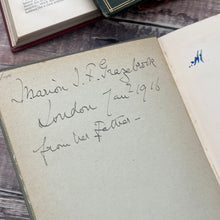 Marion J. F. Grazebrook
London Jany 1916
from her Father -